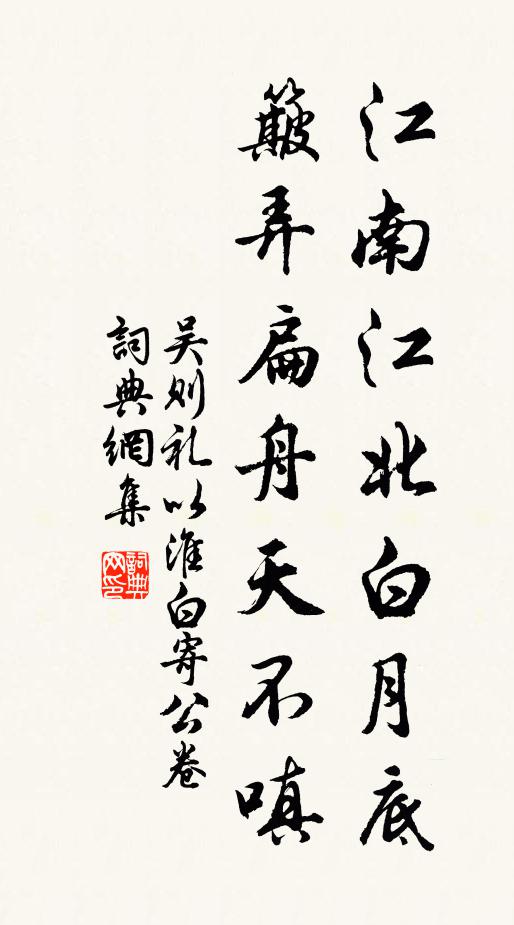 江南江北白月底
簸弄扁舟天不嗔
吴则礼以淮白寄公卷
詞典網集
詞典網印